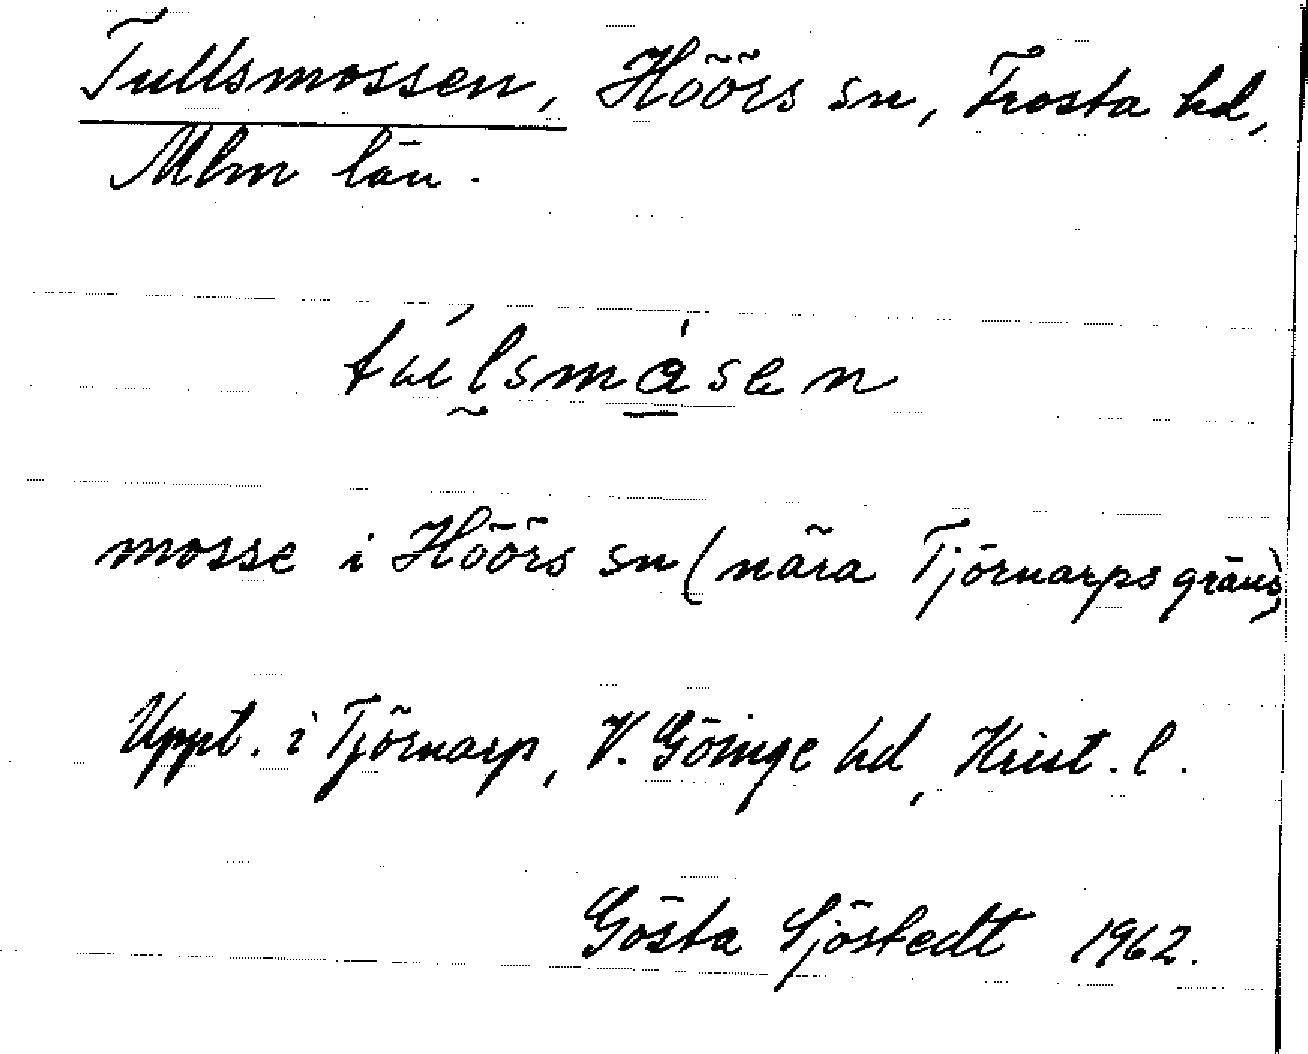 Tullsmossen, Höörs sn, Frosta hd,
Mlm län.
mosse i Höörs sn (nära Tjörnarps gräns)
Uppt. i Tjörnarp, V. Göinge hd, Krist. l.
Gösta Sjöstedt 1962.